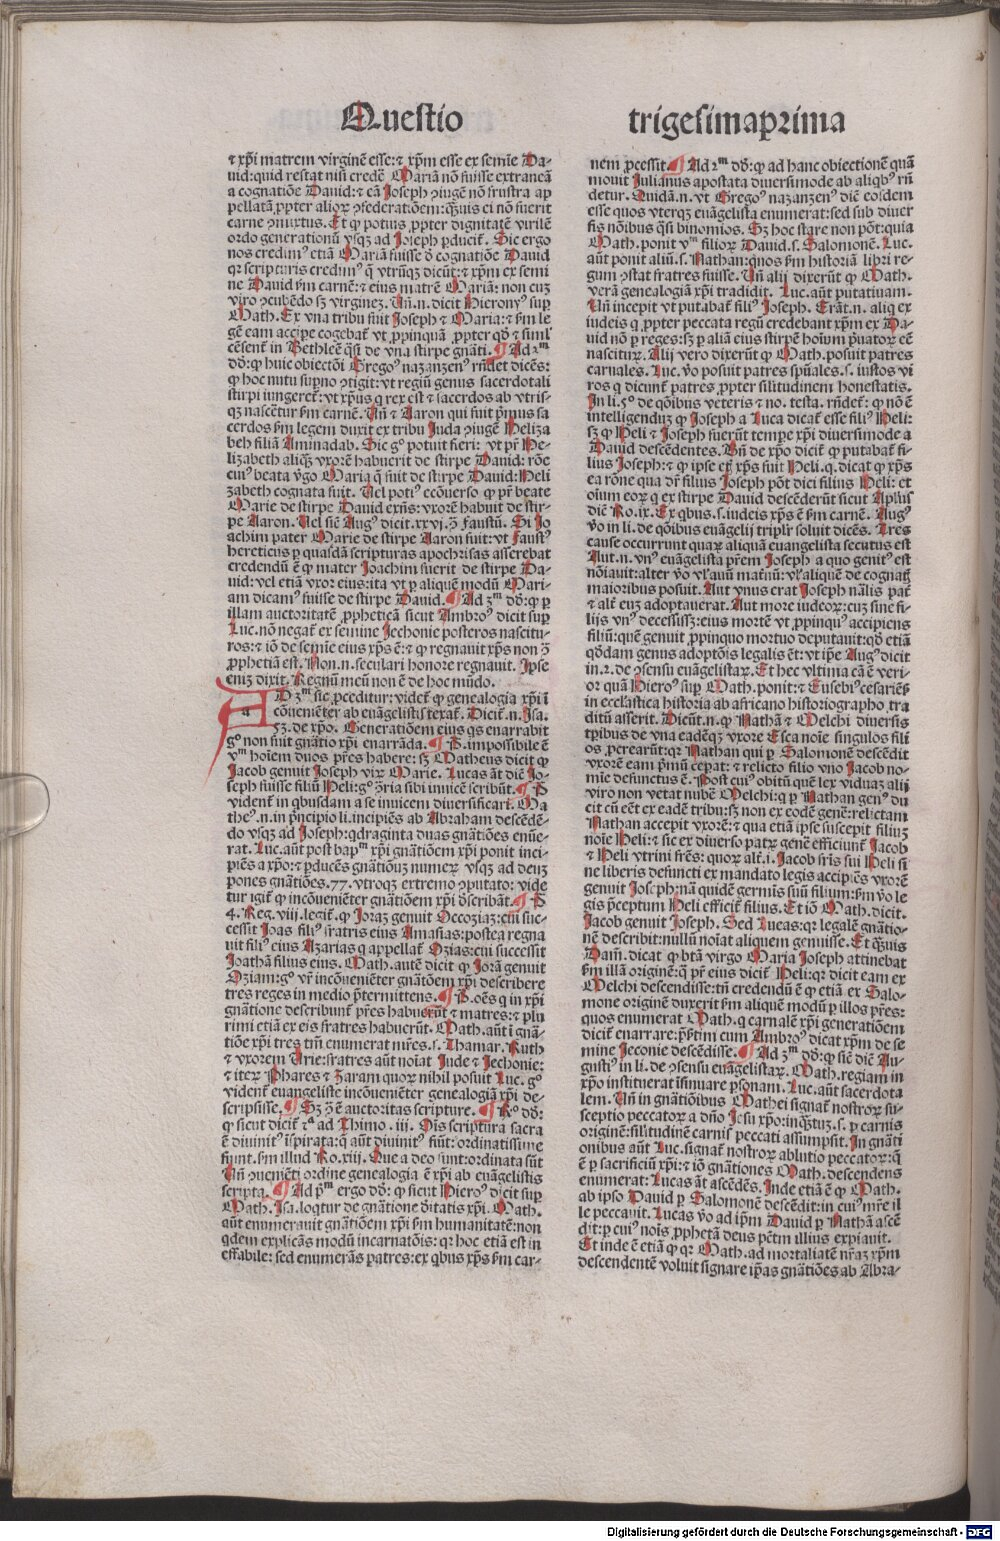 Questio trigesimaprima
⁊ xp̄i matrem virginē esse: ⁊ xp̄m esse ex semīe Da-
uid: quid restat nisi credē Mariā nō fuisse extraneā
a cognatiōe Dauid: ⁊ eā Joseph ꝯiugē nō frustra ap
pellatā ꝓpter alioꝝ ꝯfederatiōem: qȝuis ei nō fuerit
carne ꝯmixtus. Et ꝙ potius ꝓpter dignitatē virilē
ordo generationū vsqȝ ad Joseph ꝑducit᷑. Sic ergo
nos credimꝰ etiā Mariā fuisse d̄ cognatiōe Dauid
qꝛ scripturis credimꝰ q̄ vtrūqȝ dicūt: ⁊ xp̄m ex semi
ne Dauid ẜm carnē: ⁊ eius matrē Mariā: non cuȝ
viro ꝯcubēdo sȝ virgineȝ. Uñ.n. dicit Hieronyꝰ suꝑ
Math. Ex vna tribu fuit Joseph ⁊ Maria: ⁊ ẜm le
gē eam accipe cogebat᷑ vt ꝓpinquā ꝓpter qd̄ ⁊ simul
cēsent᷑ in Bethleē q̄si de vna stirpe gnāti. ¶ Ad 2ᵐ
dō: ꝙ huic obiectōi Gregoꝰ nazanzenꝰ rn̄det dicēs:
ꝙ hoc nutu suꝑno ꝯtigit: vt regiū genus sacerdotali
stirpi iungeret᷑: vt xp̄us q rex est ⁊ sacerdos ab vtris-
qȝ nascet᷑ur ẜm carnē. Uñ ⁊ Aaron qui fuit pͥmus sa
cerdos ẜm legem duxit ex tribu Juda ꝯiugē Heliza
beh filiā Aminadab. Sic gͦ potuit fieri: vt pr̄ He-
lizabeth aliqȝ vxorē habuerit de stirpe Dauid: rōe
cuiꝰ beata vgͦ Maria q̄ fuit de stirpe Dauid: Heli
zabeth cognata fuit. Uel potiꝰ ecōuerso ꝙ pr̄ beate
Marie de stirpe Dauid exn̄s: vxorē habuit de stir-
pe Aaron. Uel sic̄ Augꝰ dicit. xxvi. ꝯͣ faustū. Si Jo
achim pater Marie de stirpe Aaron fuit: vt Faustꝰ
hereticus ꝑ quasdā scripturas apochrifas asserebat
credendū ē ꝙ mater Joachim fuerit de stirpe Da-
uid: vel etiā vxor eius: ita vt ꝑ aliquē modū Mari-
am dicamꝰ fuisse de stirpe Dauid. ¶ Ad 3ᵐ dō: ꝙ ꝑ
illam auctoritatē ꝓpheticā sicut Ambroꝰ dicit suꝑ
Luc. nō negat᷑ ex semine Jechonie posteros nascitu-
ros: ⁊ iō de semīe eius xp̄s ē: ⁊ ꝙ regnauit xp̄s non ꝯͣ
ꝓphetiā est. Non.n. seculari honore regnauit. Ipse
enuȝ dixit. Regnū meū non ē de hoc mūdo.
AD 3ᵐ sic ꝓceditur: videt᷑ ꝙ genealogia xp̄i ī
cōueniēter ab euāgelistis texat᷑. Dicit᷑.n. Isa.
53. de xp̄o. Generationem eius qs enarrabit
gͦ non fuit gnātio xp̄i enarrāda. ¶ P. impossibile ē
vᵐ hoīem duos pr̄es habere: sȝ Matheus dicit ꝙ
Jacob genuit Joseph viꝝ Marie. Lucas āt diē Jo-
seph fuisse filiū Heli: gͦ ꝯͣria sibi inuicē scribūt. ¶ P
vident᷑ in qbusdam a se inuicem diuersificari. Ma
theꝰ.n. in pͥncipio li. incipiēs ab Abraham descēdē-
do vsqȝ ad Joseph: qdraginta duas gnātiōes enūe-
rat. Luc. aūt post bapᵐ xp̄i gnātiōem xp̄i ponit inci-
piēs a xp̄o: ⁊ ꝑducēs gnātiōnuȝ numeꝝ vsqȝ ad deuȝ
pones gnātiōes. 77. vtroqȝ extremo ꝯputato: vide
tur igit᷑ ꝙ incōueniēter gnātiōem xp̄i d̄scribāt. ¶ P
4. Reg. viii. legit᷑. ꝙ Joraȝ genuit Occoziaȝ: cui suc-
cessit Joas filiꝰ fratris eius Amasias: postea regna
uit filiꝰ eius Azarias q appellat᷑ Ozias: cui successit
Joathā filius eius. Math. autē dicit ꝙ Jorā genuit
Oziam: gͦ vr̄ incōueniēter gnātiōem xp̄i describere
tres reges in medio p̄termittens. ¶ P. oēs q in xp̄i
gnātione describunt᷑ pr̄es habuerūt ⁊ matres: ⁊ plu
rimi etiā ex eis fratres habuerūt. Math. aūt ī gnā-
tiōe xp̄i tres tm̄ enumerat mr̄es. s. Thamar. Ruth
⁊ vxorem Urie: fratres aūt noīat Jude ⁊ Jechonie:
⁊ iteꝝ Phares ⁊ Zaram quoꝝ nihil posuit Luc. gͦ
vident᷑ euangeliste incōueniēter genealogiā xp̄i de-
scripsisse. ¶ Sȝ ꝯͣ ē auctoritas scripture. ¶ Rͦ dō:
ꝙ sicut dicit᷑ 2ͣ ad Thimo. iii. Oīs scriptura sacra
ē diuinitꝰ īspirata: q̄ aūt diuinitꝰ fiūt: ordinatissime
fiunt. ẜm illud Ro. xiii. Que a deo sunt: ordinata sūt
Uñ ꝯueniēti ordine genealogia ē xp̄i ab euāgelistis
scripta. ¶ Ad pͥᵐ ergo dō: ꝙ sicut Hieroꝰ dicit suꝑ
Math. Isa. loqtur de gnatione d̄itatis xp̄i. Math.
aūt enumerauit gnātiōem xp̄i ẜm humanitatē: non
qdem explicās modū incarnatōis: qꝛ hoc etiā est in
effabile: sed enumerās patres: ex qbus xp̄s ẜm car-
nem ꝓcessit. ¶ Ad 2ᵐ dō: ꝙ ad hanc obiectionē quā
mouit Julianus apostata diuersimode ab aliqbꝰ rn̄
detur. Quidā.n. vt Gregoꝰ nazanzenꝰ diē eosdem
esse quos vterqȝ euāgelista enumerat: sed sub diuer
sis nōibus q̄si binomios. Sȝ hoc stare non pōt: quia
Math. ponit vᵐ filioꝝ Dauid. s. Salomonē. Luc.
aūt ponit aliū. s. Nathan: quos ẜm historiā libri re-
gum ꝯstat fratres fuisse. Uñ alij dixerūt ꝙ Math.
verā genealogiā xp̄i tradidit. Luc. aūt putatiuam.
Uñ incepit vt putabat᷑ filiꝰ Joseph. Erāt.n. aliq ex
iudeis q ꝓpter peccata regū credebant xp̄m ex Da-
uid nō ꝑ reges: sȝ ꝑ aliā eius stirpē hoīum p̄uatoꝝ eē
nasciturꝝ. Alij vero dixerūt ꝙ Math. posuit patres
carnales. Luc. v̄o posuit patres spūales. s. iustos vi
ros q dicunt᷑ patres ꝓpter silitudinem honestatis.
In li. 5ͦ de qōibus veteris ⁊ no. testa. rn̄det᷑: ꝙ nō ē
intelligenduȝ ꝙ Joseph a Luca dicat᷑ esse filiꝰ Heli:
sȝ ꝙ Heli ⁊ Joseph fuerūt tempe xp̄i diuersimode a
Dauid descēdentes. Uñ de xp̄o dicit᷑ ꝙ putabat᷑ fi-
lius Joseph: ⁊ ꝙ ipse et̄ xp̄s fuit Heli. q. dicat ꝙ xp̄s
ea rōne qua dr̄ filius Joseph pōt dici filius Heli: et
oīum eoꝝ q ex stirpe Dauid descēderūt sicut Apl̄us
diē Ro. ix. Ex qbus. s. iudeis xp̄s ē ẜm carnē. Augꝰ
v̄o in li. de qōibus euāgelij triplr̄ soluit dicēs. Tres
cause occurrunt quaꝝ aliquā euangelista secutus est
Aut.n. vnꝰ euāgelista pr̄em Joseph a quo genitꝰ est
nōiauit: alter v̄o vl̓ auū mat̓nū: vl̓ aliquē de cognatꝭ
maioribus posuit. Aut vnus erat Joseph nālis pat᷑
⁊ alt᷑ euȝ adoptauerat. Aut more iudeoꝝ: cuȝ sine fi-
lijs vnꝰ decessissȝ: eius mortē vt ꝓpinquꝰ accipiens
filiū: quē genuit ꝓpinquo mortuo deputauit: qd̄ etiā
qōdam genus adoptōis legalis ē: vt ip̄e Augꝰ dicit
in. 2. de ꝯsensu euāgelistaꝝ. Et hec vltima cā ē veri-
or quā Hieroꝰ suꝑ Math. ponit: ⁊ Eusebiꝰ cesariēs
in eccl̄astica historia ab africano historiographo tra
ditū asserit. Dicūt.n. ꝙ Nathā ⁊ Melchi diuersis
tpibus de vna eadēqȝ vxore Esca noīe singulos fili
os ꝓcrearūt: qꝛ Nathan qui ꝑ Salomonē descēdit
vxorē eam pͥmū cepat: ⁊ relicto filio vno Jacob no-
mīe defunctus ē. Post cuiꝰ obitū quē lex viduaȝ alij
viro non vetat nubē Melchi: q ꝑ Nathan genꝰ du
cit cū eēt ex eadē tribu: sȝ non ex eodē genē: relictam
Nathan accepit vxorē: ⁊ qua etiā ipse suscepit filiuȝ
noīe Heli: ⁊ sic ex diuerso patꝝ genē efficiunt᷑ Jacob
⁊ Heli vtrini fr̄es: quoꝝ alt᷑. i. Jacob fr̄is sui Heli si
ne liberis defuncti ex mandato legis accipiēs vxorē
genuit Joseph: nā quidē germīs suū filium: ẜm v̄o le
gis p̄ceptum Heli efficit᷑ filius. Et iō Math. dicit.
Jacob genuit Joseph. Sed Lucas: qꝛ legalē gnātio-
nē describit: nullū noīat aliquem genuisse. Et qȝuis
Dam̄. dicat ꝙ btā virgo Maria Joseph attinebat
ẜm illā originē: ꝙ pr̄ eius dicit᷑ Heli: qꝛ dicit eam ex
Melchi descendisse: tn̄ credendū ē ꝙ etiā ex Salo-
mone originē duxerit ẜm aliquē modū ꝑ illos pr̄es:
quos enumerat Math. q carnalē xp̄i generatiōem
dicit᷑ enarrare: p̄st̄im cum Ambroꝰ dicat xp̄m de se
mine Jeconie descēdisse. ¶ Ad 3ᵐ dō: ꝙ sic̄ diē Au-
gustiꝰ in li. de ꝯsensu euāgelistaꝝ. Math. regiam in
xp̄o instituerat īsinuare ꝑsonam. Luc. aūt sacerdota
lem. Uñ in gnātiōibus Mathei signat᷑ nostroꝝ su-
sceptio peccatoꝝ a dn̄o Jesu xp̄o: inqȝtuȝ. s. ꝑ carnis
originē: silitudinē carnis peccati assumpsit. In gnāti
onibus aūt Luc. signat᷑ nostroꝝ ablutio peccatoꝝ: q̄
ē ꝑ sacrificiū xp̄i: ⁊ iō gnātiones Math. descendens
enumerat: Lucas āt ascēdēs. Inde etiā ē ꝙ Math.
ab ipso Dauid ꝑ Salomonē descēdit: in cuiꝰ mr̄e il
le peccauit. Lucas v̄o ad ip̄m Dauid ꝑ Nathā ascē
dit: ꝑ cuiꝰ nois ꝓphetā deus pctm̄ illius expiauit.
Et inde ē etiā ꝙ qꝛ Math. ad mortalitatē nr̄aȝ xp̄m
descendentē voluit signare ip̄as gnātiōes ab Abra-
Digitalisierung gefördert durch die Deutsche Forschungsgemeinschaft - DFG